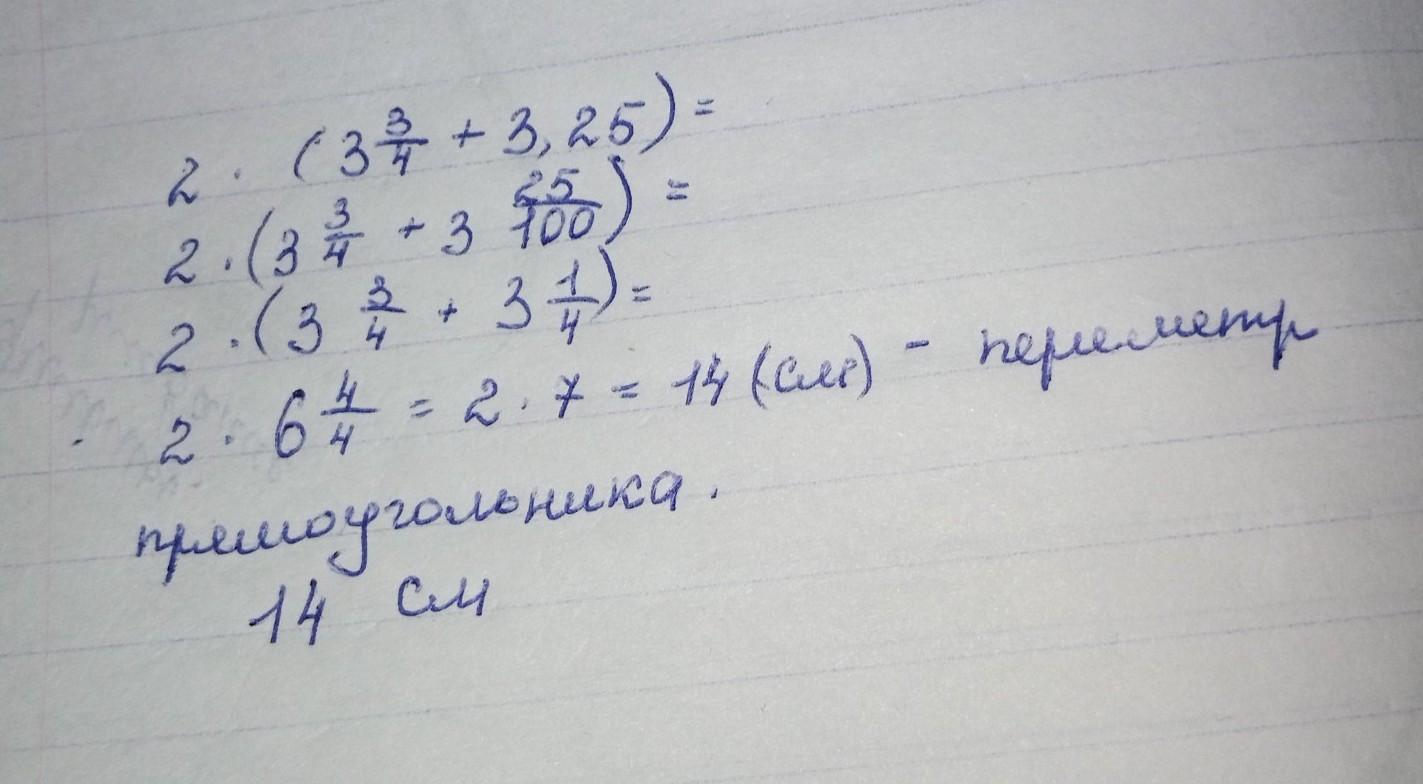 2 · (3 3/4 + 3,25) =
2 · (3 3/4 + 3 25/100) =
2 · (3 3/4 + 3 1/4) =
2 · 6 4/4 = 2 · 7 = 14 (см) - периметр
прямоугольника.
14 см